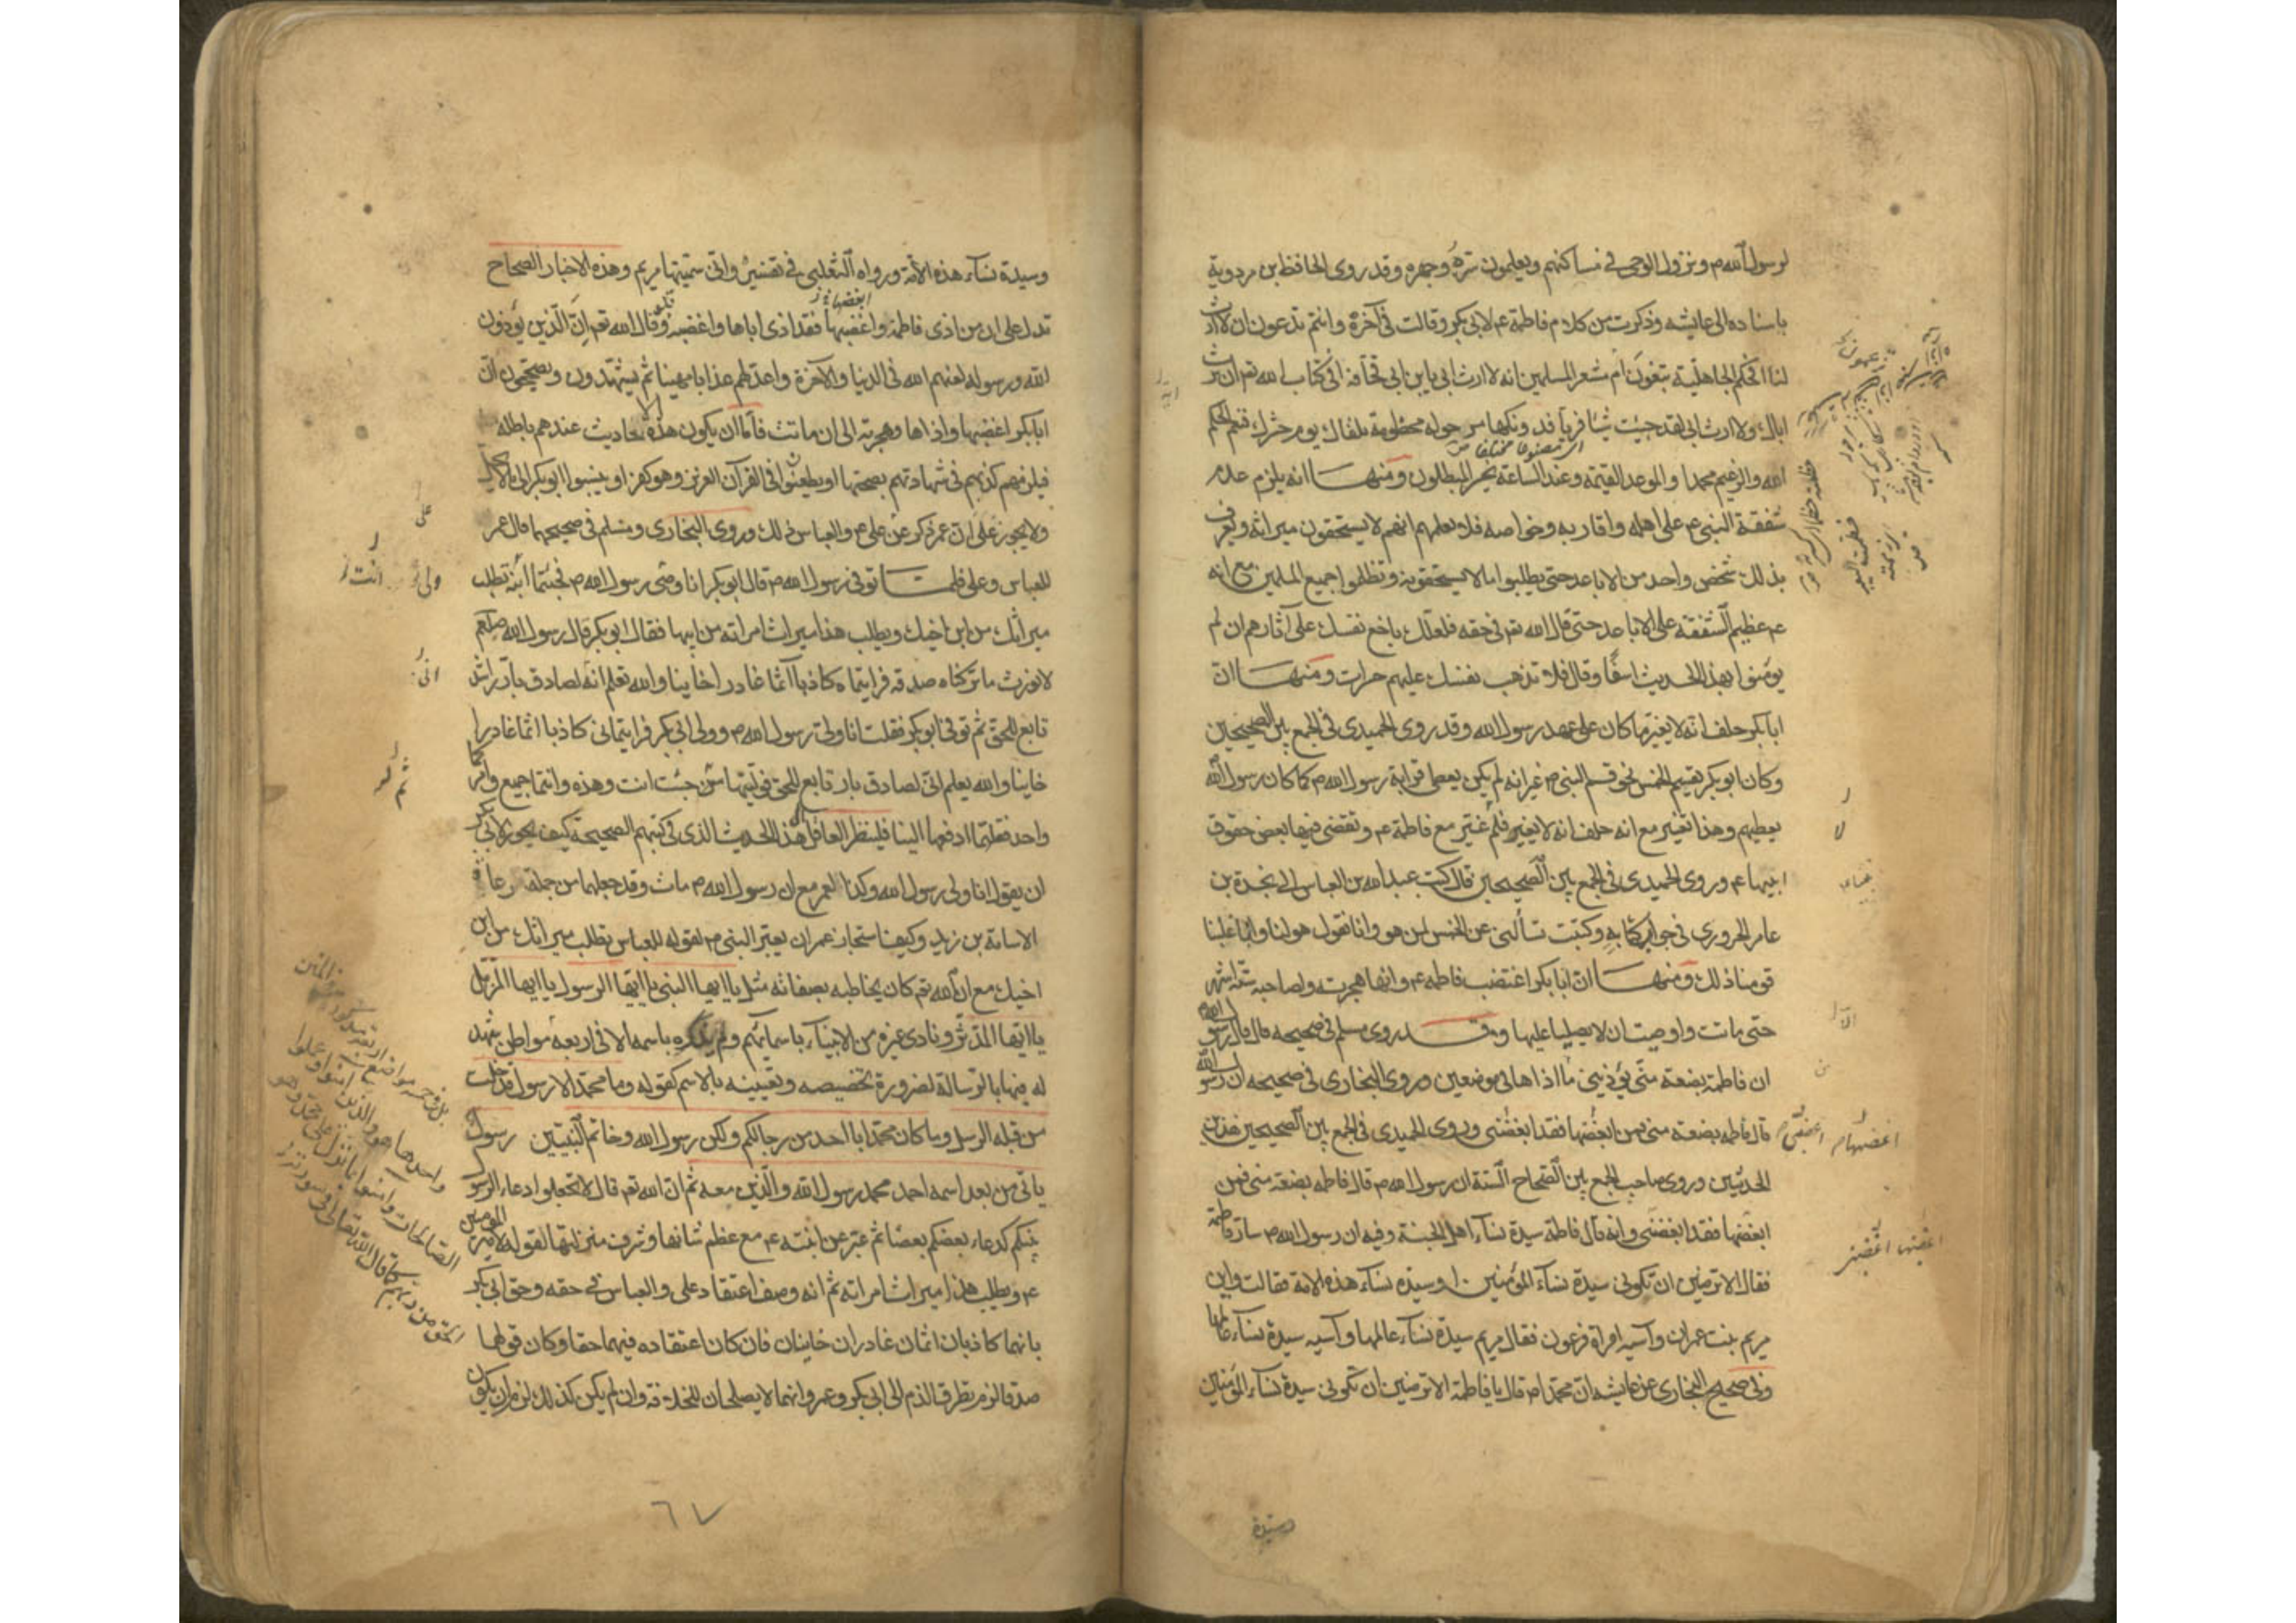 لرسول الله ص ونزول الوحى فى مساكنهم ويعلمون سره وجهره وقد روى الحافظ ابن مردوية
باسناده الى عايشه وذكرت من كلام فاطمة ع لابى بكر وقالت فى آخره وانتم تدعون ان لا ارث
لنا افحكم الجاهلية تبغون ام معشر المسلمين انه لا ارث ابى يا بن ابى قحافه افى كتاب الله تع ان ترث
اباك ولا ارث ابى لقد جئت شيئا فريا فدونكها مرحوله مخطومة تلقاك يوم حشرك فنعم الحكم
الله والزعيم محمد والموعد القيمة وعند الساعة يخسر المبطلون ومنها انه يلزم عدم
شفقة النبى ع على اهله واقاربه وخواصه فلا يعلمهم انهم لا يستحقون ميراثه ويعرف
بذلك شخص واحد من الاباعد حتى يطلبوا ما لا يستحقونه وتظلموا جميع المسلمين مع انه
ع عظيم الشفقه على الاباعد حتى قال الله تع فى حقه فلعلك باخع نفسك على آثارهم ان لم
يومنوا بهذا الحديث اسفا وقال فلا تذهب نفسك عليهم حسرات ومنها ان
ابا بكر حلف انه لا يغير ما كان على عهد رسول الله وقد روى الحميدى فى الجمع بين الصحيحين
وكان ابو بكر يقسم الخمس نحو قسم النبى ص غير انه لم يكن يعطى قرابة رسول الله ص كما كان رسول الله
يعطيهم وهذا تغيير مع انه حلف انه لا يغير فلم غير مع فاطمة ع وتقضى فيها بعض حقوق
ابيها ع وروى الحميدى فى الجمع بين الصحيحين قال كتب عبد الله بن العباس الى نجدة بن
عامر الحرورى فى جواب كتابه وكتبت تسألنى عن الخمس لمن هو وانا نقول هو لنا وابا علينا
قومنا ذلك ومنها ان ابا بكر اغضب فاطمه ع وانها هجرته ولصاحبه ستة اشهر
حتى ماتت واوصت ان لا يصليا عليها وقد روى مسلم فى صحيحه قال قال رسول الله ص
ان فاطمة بضعة منى يؤذينى ما اذاها فى موضعين وروى البخارى فى صحيحه ان رسول الله
قال فاطمه بضعة منى فمن ابغضها فقد ابغضنى وروى الحميدى فى الجمع بين الصحيحين هذين
الحديثين وروى صاحب الجمع بين الصحاح الستة ان رسول الله ص قال فاطمه بضعة منى فمن
ابغضها فقد ابغضنى وانه قال فاطمة سيدة نساء اهل الجنة وفيه ان رسول الله ص سار فاطمة
فقال الا ترضين ان تكونى سيدة نساء المؤمنين او سيدة نساء هذه الامة فقالت واين
مريم بنت عمران وآسيه امراة فرعون فقال مريم سيدة نساء عالمها وآسيه سيدة نساء عالمها
وفى صحيح البخارى عن عايشه ان محمدا ص قال يا فاطمة الا ترضين ان تكونى سيدة نساء المؤمنين
وسيدة
وسيدة نساء هذه الامة ورواه الثعلبى فى تفسير وانى سميتها مريم وهذه الاخبار الصحاح
تدل على ان من اذى فاطمة واغضبها فقد اذى اباها واغضبه وقال الله تع ان الذين يؤذون
الله ورسوله لعنهم الله فى الدنيا والآخرة واعد لهم عذابا مهينا ثم يشهدون ويصححون ان
ابا بكر اغضبها واذاها وهجرته الى ان ماتت فاما ان يكون هذه الاحاديث عندهم باطله
فيلزمهم كذبهم فى شهادتهم بصحتها او يطعنوا فى القرآن العزيز وهو كفر او ينسبوا ابو بكر الى ما لا يحل
ولا يجوز على ان عمر ذكر عن على ع والعباس ذلك وروى البخارى ومسلم فى صحيحهما قال عمر
للعباس وعلى فلما توفى رسول الله ص قال ابو بكر انا وصى رسول الله ص فجئتما انت تطلب
ميراثك من ابن اخيك ويطلب هذا ميراث امراته من ابيها فقال ابو بكر قال رسول الله صلعم
لا نورث ما تركناه صدقه فرايتماه كاذبا آثما غادرا خاينا والله تعلم انه لصادق بار راشد
تابع للحق ثم توفى ابو بكر فقلت انا ولى رسول الله ص وولى ابى بكر فرايتمانى كاذبا اثما غادرا
خاينا والله يعلم انى لصادق بار تابع للحق فوليتها ثم جئت انت وهذه وانتما جميع وامركما
واحد فقلتما ادفعها الينا فلينظر العاقل هذا الحديث الذى فى كتبهم الصحيحة كيف يجوز لابى بكر
ان يقول انا ولى رسول الله وكذا لعمر مع ان رسول الله ص مات وقد جعلهما من جملة رعايا
الاسامة بن زيد وكيف استجاز عمر ان يعبر النبى ص بقوله للعباس تطلب ميراثك من ابن
اخيك مع ان الله تع كان يخاطبه بصفاته مثل يا ايها النبى يا ايها الرسول يا ايها المزمل
يا ايها المدثر ونادى غيره من الانبياء باسمائهم ولم يذكره باسمه الا فى اربعه مواطن شهد
له فيها بالرسالة لضرورة تخصيصه وتعيينه بالاسم كقوله وما محمد الا رسول قد خلت
من قبله الرسل وما كان محمد ابا احد من رجالكم ولكن رسول الله وخاتم النبيين رسول
ياتى من بعد اسمه احمد محمد رسول الله والذين معه ثم ان الله تع قال لا تجعلوا دعاء الرسول
بينكم كدعاء بعضكم بعضا ثم عبر عن ابنته ع مع عظم شانها وشرف منزلتها بقوله لامير المومنين
ع ويطلب هذا ميراث امراته ثم انه وصف اعتقاد على والعباس فى حقه وحق ابى بكر
بانهما كاذبان اثمان غادران خاينان فان كان اعتقاده فيهما حقا وكان قولهما
صدقا لزم تطرق الذم الى ابى بكر وعمر وانهما لا يصلحان للخلافة وان لم يكن كذلك لزم ان يكون
٦٧